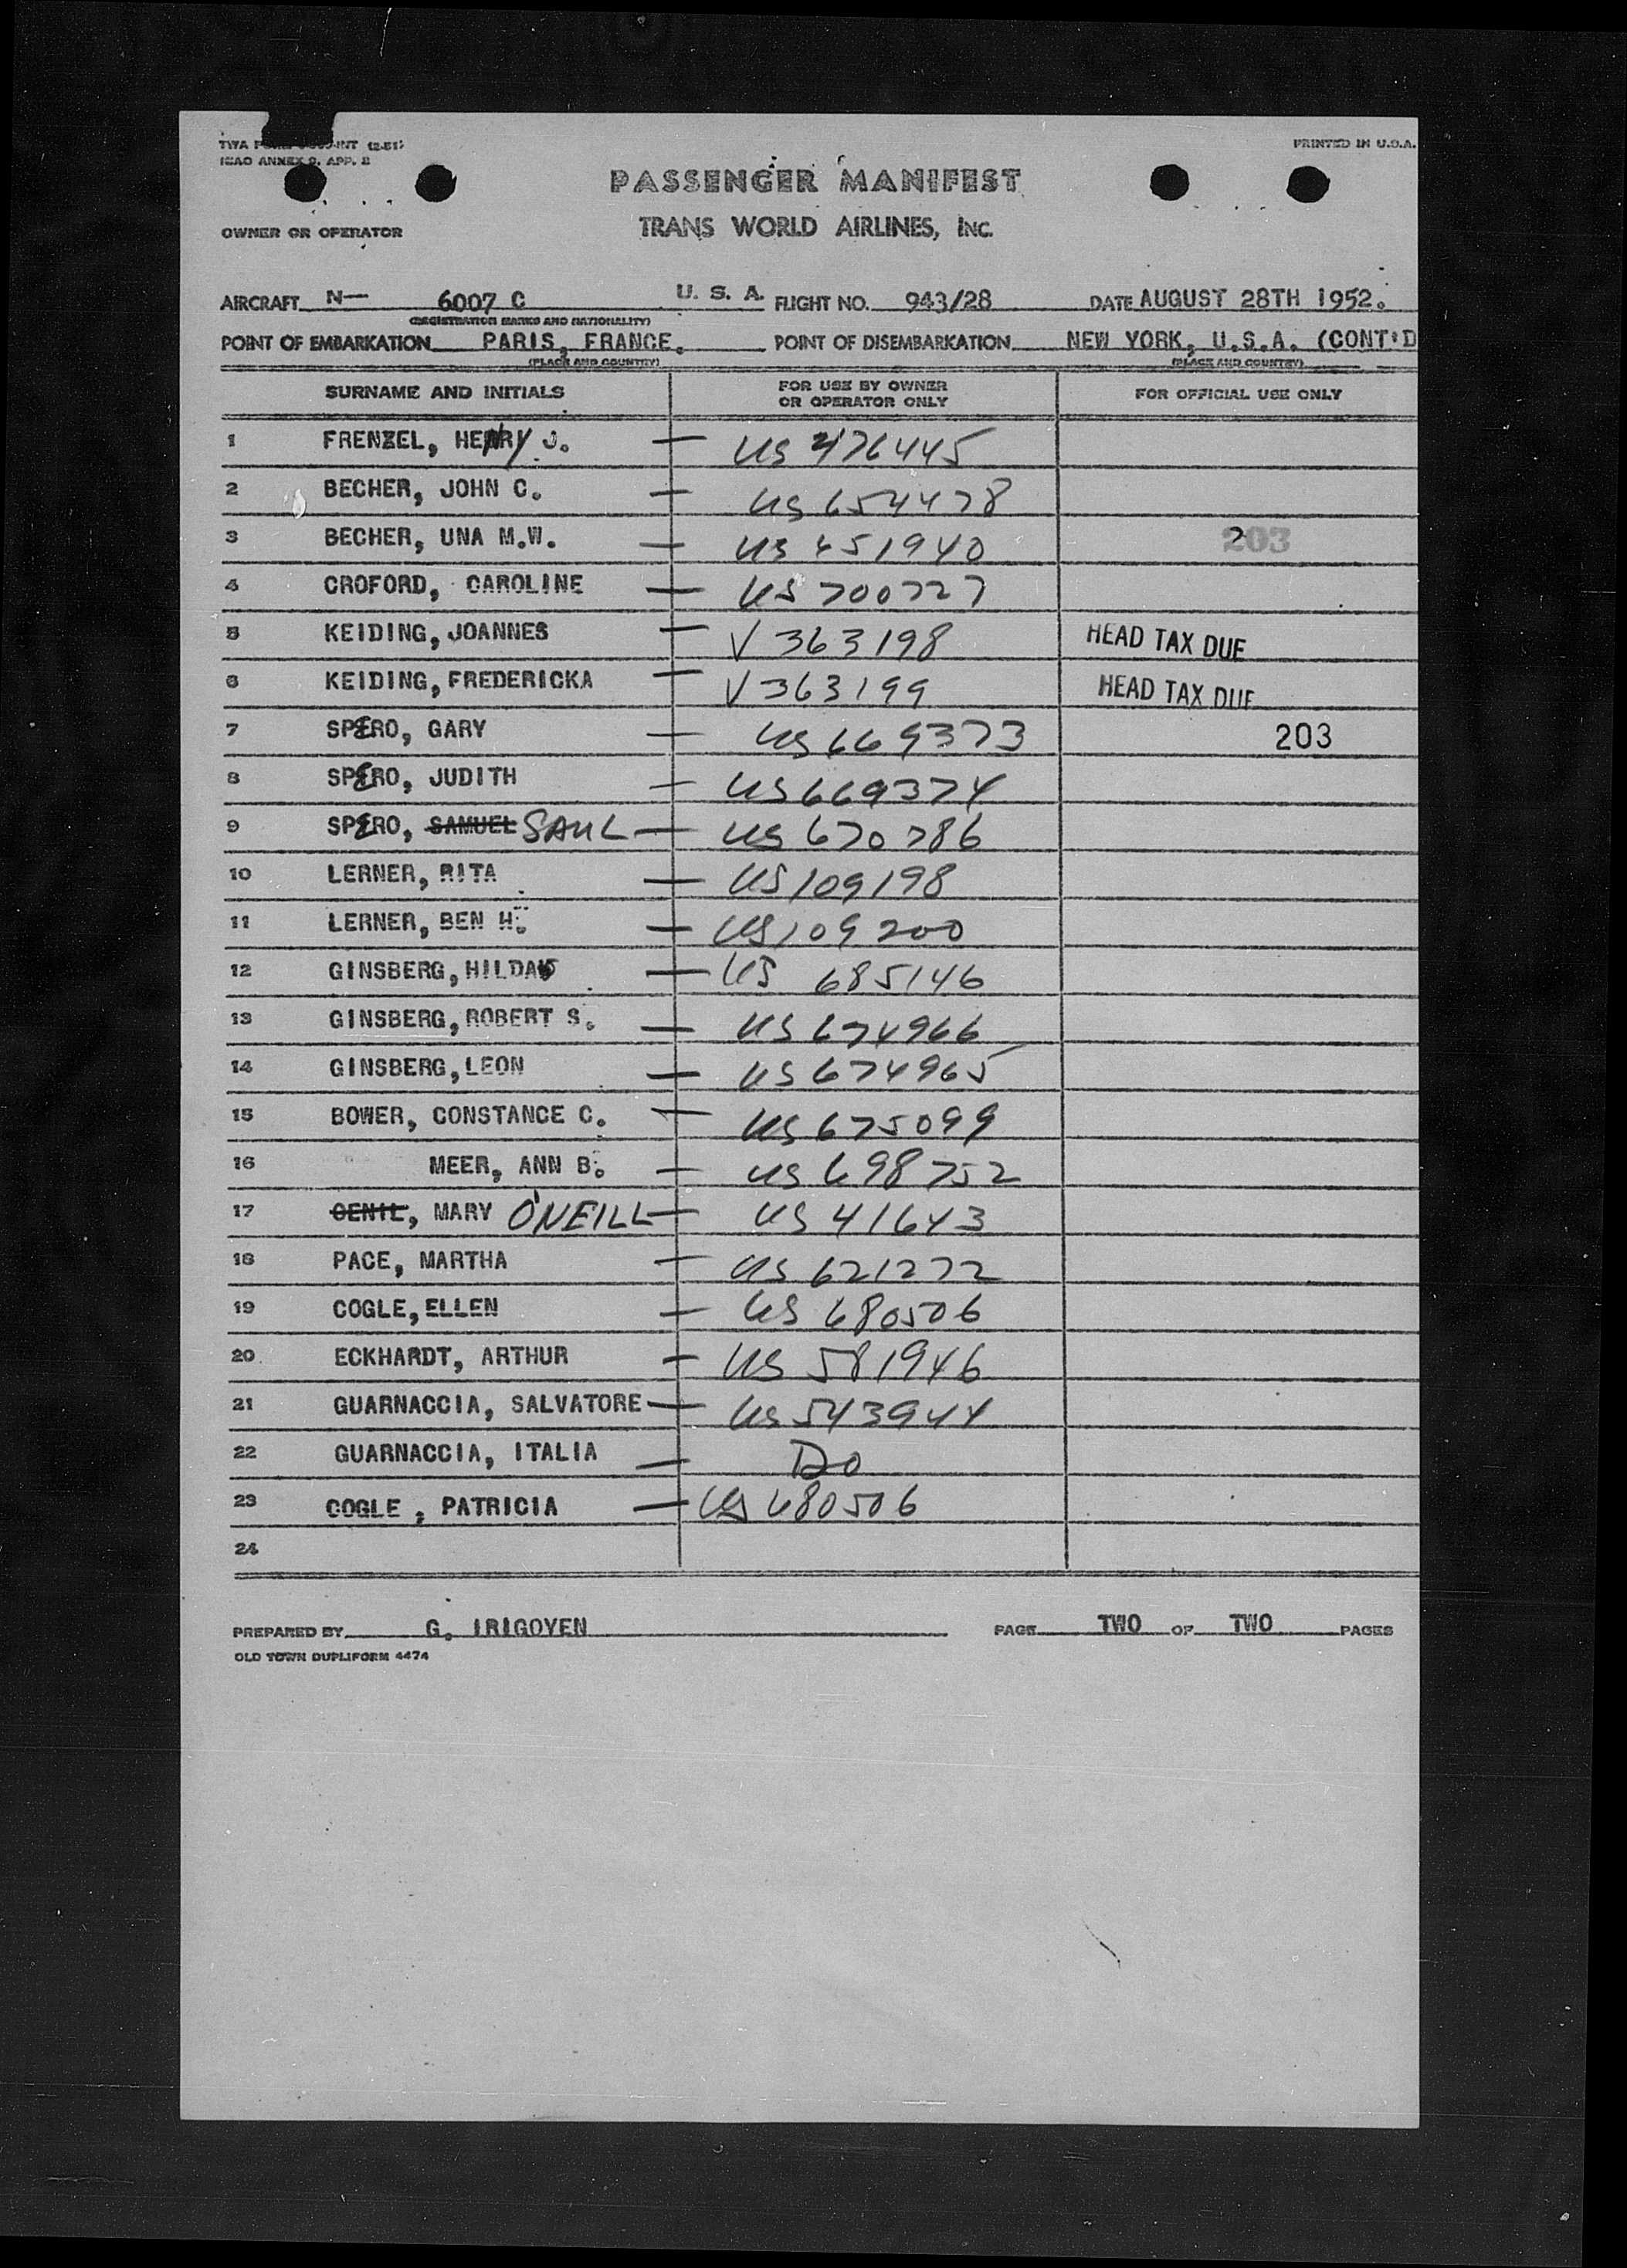 PRINTED IN U.S.A.
ICAO ANNEX 9, APP. 2
PASSENGER MANIFEST
OWNER OR OPERATOR TRANS WORLD AIRLINES, INC.
AIRCRAFT N— 6007 C U. S. A. FLIGHT NO. 943/28 DATE AUGUST 28TH 1952.
(REGISTRATION MARKS AND NATIONALITY)
POINT OF EMBARKATION PARIS, FRANCE. POINT OF DISEMBARKATION NEW YORK, U.S.A. (CONT'D
(PLACE AND COUNTRY) (PLACE AND COUNTRY)
SURNAME AND INITIALS FOR USE BY OWNER OR OPERATOR ONLY FOR OFFICIAL USE ONLY
1 FRENZEL, HENRY J. — US 476445
2 BECHER, JOHN C. — US 654478
3 BECHER, UNA M.W. — US 451940 203
4 CROFORD, CAROLINE — US 700727
5 KEIDING, JOANNES — V 363198 HEAD TAX DUE
6 KEIDING, FREDERICKA — V 363199 HEAD TAX DUE
7 SPERO, GARY — US 669373 203
8 SPERO, JUDITH — US 669374
9 SPERO, SAMUEL SAUL — US 670786
10 LERNER, RITA — US 109198
11 LERNER, BEN H. — US 109200
12 GINSBERG, HILDA — US 685146
13 GINSBERG, ROBERT S. — US 674966
14 GINSBERG, LEON — US 674965
15 BOWER, CONSTANCE C. — US 675099
16 MEER, ANN B. — US 698752
17 OENIL, MARY O'NEILL — US 41643
18 PACE, MARTHA — US 621272
19 COGLE, ELLEN — US 680506
20 ECKHARDT, ARTHUR — US 581946
21 GUARNACCIA, SALVATORE — US 543944
22 GUARNACCIA, ITALIA — DO
23 COGLE, PATRICIA — US 680506
24
PREPARED BY G. IRIGOYEN PAGE TWO OF TWO PAGES
OLD TOWN DUPLIFORM 4474